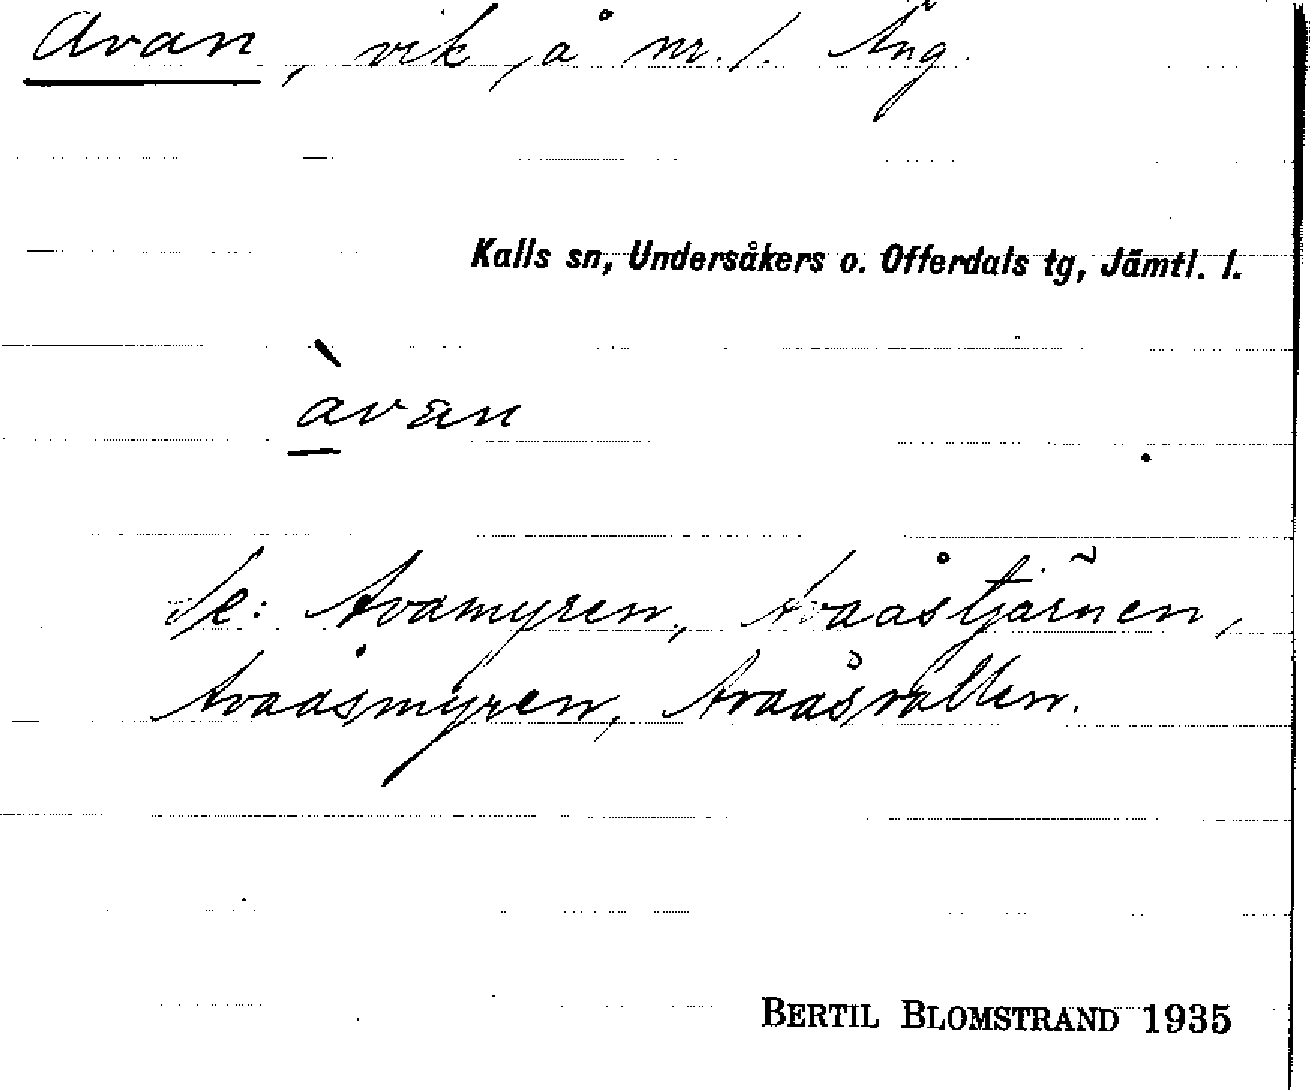 Avan, vik, å nr. 1. Äng.
Kalls sn, Undersåkers o. Offerdals tg, Jämtl. l.
àvan
Se: Avamyren, Avaåstjärnen,
Avaåsmyren, Avaåsvallen.
BERTIL BLOMSTRAND 1935